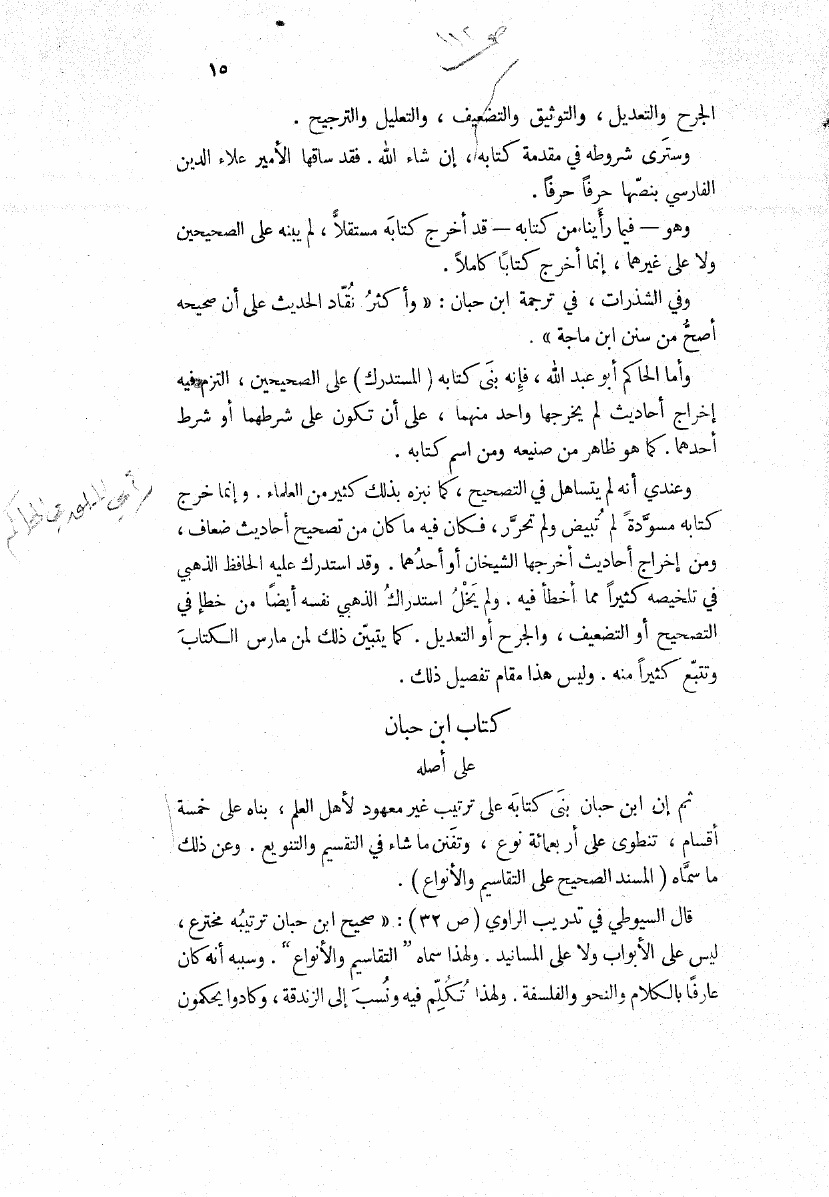 ص ١١٢
١٥
الجرح والتعديل ، والتوثيق والتضعيف ، والتعليل والترجيح .
وستَرى شروطه في مقدمة كتابه ، إن شاء الله . فقد ساقها الأمير علاء الدين
الفارسي بنصّها حرفاً حرفاً .
وهو — فيما رأينا من كتابه — قد أخرج كتابَه مستقلاًّ ، لم يبنه على الصحيحين
ولا على غيرهما ، إنما أخرج كتابًا كاملاً .
وفي الشذرات ، في ترجمة ابن حبان : « وأكثرُ نُقّاد الحديث على أن صحيحه
أصحُّ من سنن ابن ماجة » .
وأما الحاكم أبو عبد الله ، فإنه بنَى كتابه ( المستدرك ) على الصحيحين ، التزم فيه
إخراج أحاديث لم يخرجها واحد منهما ، على أن تكون على شرطهما أو شرط
أحدهما . كما هو ظاهر من صنيعه ومن اسم كتابه .
وعندي أنه لم يتساهل في التصحيح ، كما نبزه بذلك كثير من العلماء . وإنما خرج
كتابه مسوَّدةً لم تُبيض ولم تحرَّر ، فكان فيه ما كان من تصحيح أحاديث ضعاف ،
ومن إخراج أحاديث أخرجها الشيخان أو أحدُهما . وقد استدرك عليه الحافظ الذهبي
في تلخيصه كثيراً مما أخطأ فيه . ولم يَخْلُ استدراكُ الذهبي نفسه أيضاً من خطإ في
التصحيح أو التضعيف ، والجرح أو التعديل . كما يتبيّن ذلك لمن مارس الكتابَ
وتتبّع كثيراً منه . وليس هذا مقام تفصيل ذلك .
كتاب ابن حبان
على أصله
ثم إن ابن حبان بنَى كتابَه على ترتيب غير معهود لأهل العلم ، بناه على خمسة
أقسام ، تنطوى على أربعمائة نوع ، وتفنن ما شاء في التقسيم والتنويع . وعن ذلك
ما سمَّاه ( المسند الصحيح على التقاسيم والأنواع ) .
قال السيوطي في تدريب الراوي ( ص ٣٢ ) : « صحيح ابن حبان ترتيبُه مخترع ،
ليس على الأبواب ولا على المسانيد . ولهذا سماه ” التقاسيم والأنواع “ . وسببه أنه كان
عارفًا بالكلام والنحو والفلسفة . ولهذا تُكُلِّم فيه ونُسبَ إلى الزندقة ، وكادوا يحكمون